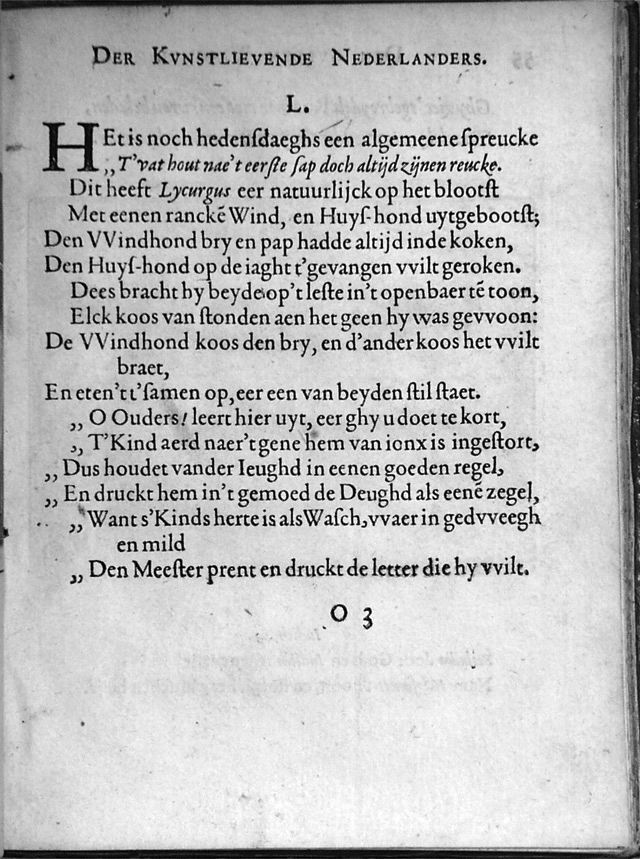 DER KVNSTLIEVENDE NEDERLANDERS.
L.
HEt is noch hedensdaeghs een algemeene spreucke
,, T'vat hout nae't eerste sap doch altijd zijnen reucke.
Dit heeft Lycurgus eer natuurlijck op het blootst
Met eenen ranckē Wind, en Huys-hond uytgebootst;
Den VVindhond bry en pap hadde altijd inde koken,
Den Huys-hond op de iaght t'gevangen vvilt geroken.
Dees bracht hy beyde op't leste in't openbaer tē toon,
Elck koos van stonden aen het geen hy was gevvoon:
De VVindhond koos den bry, en d'ander koos het vvilt
braet,
En eten't t'samen op, eer een van beyden stil staet.
,, O Ouders! leert hier uyt, eer ghy u doet te kort,
,, T'Kind aerd naer't gene hem van ionx is ingestort,
,, Dus houdet vander Ieughd in eenen goeden regel,
,, En druckt hem in't gemoed de Deughd als eenē zegel,
,, Want s'Kinds herte is als Wasch, vvaer in gedvveegh
en mild
,, Den Meester prent en druckt de letter die hy vvilt.
O 3